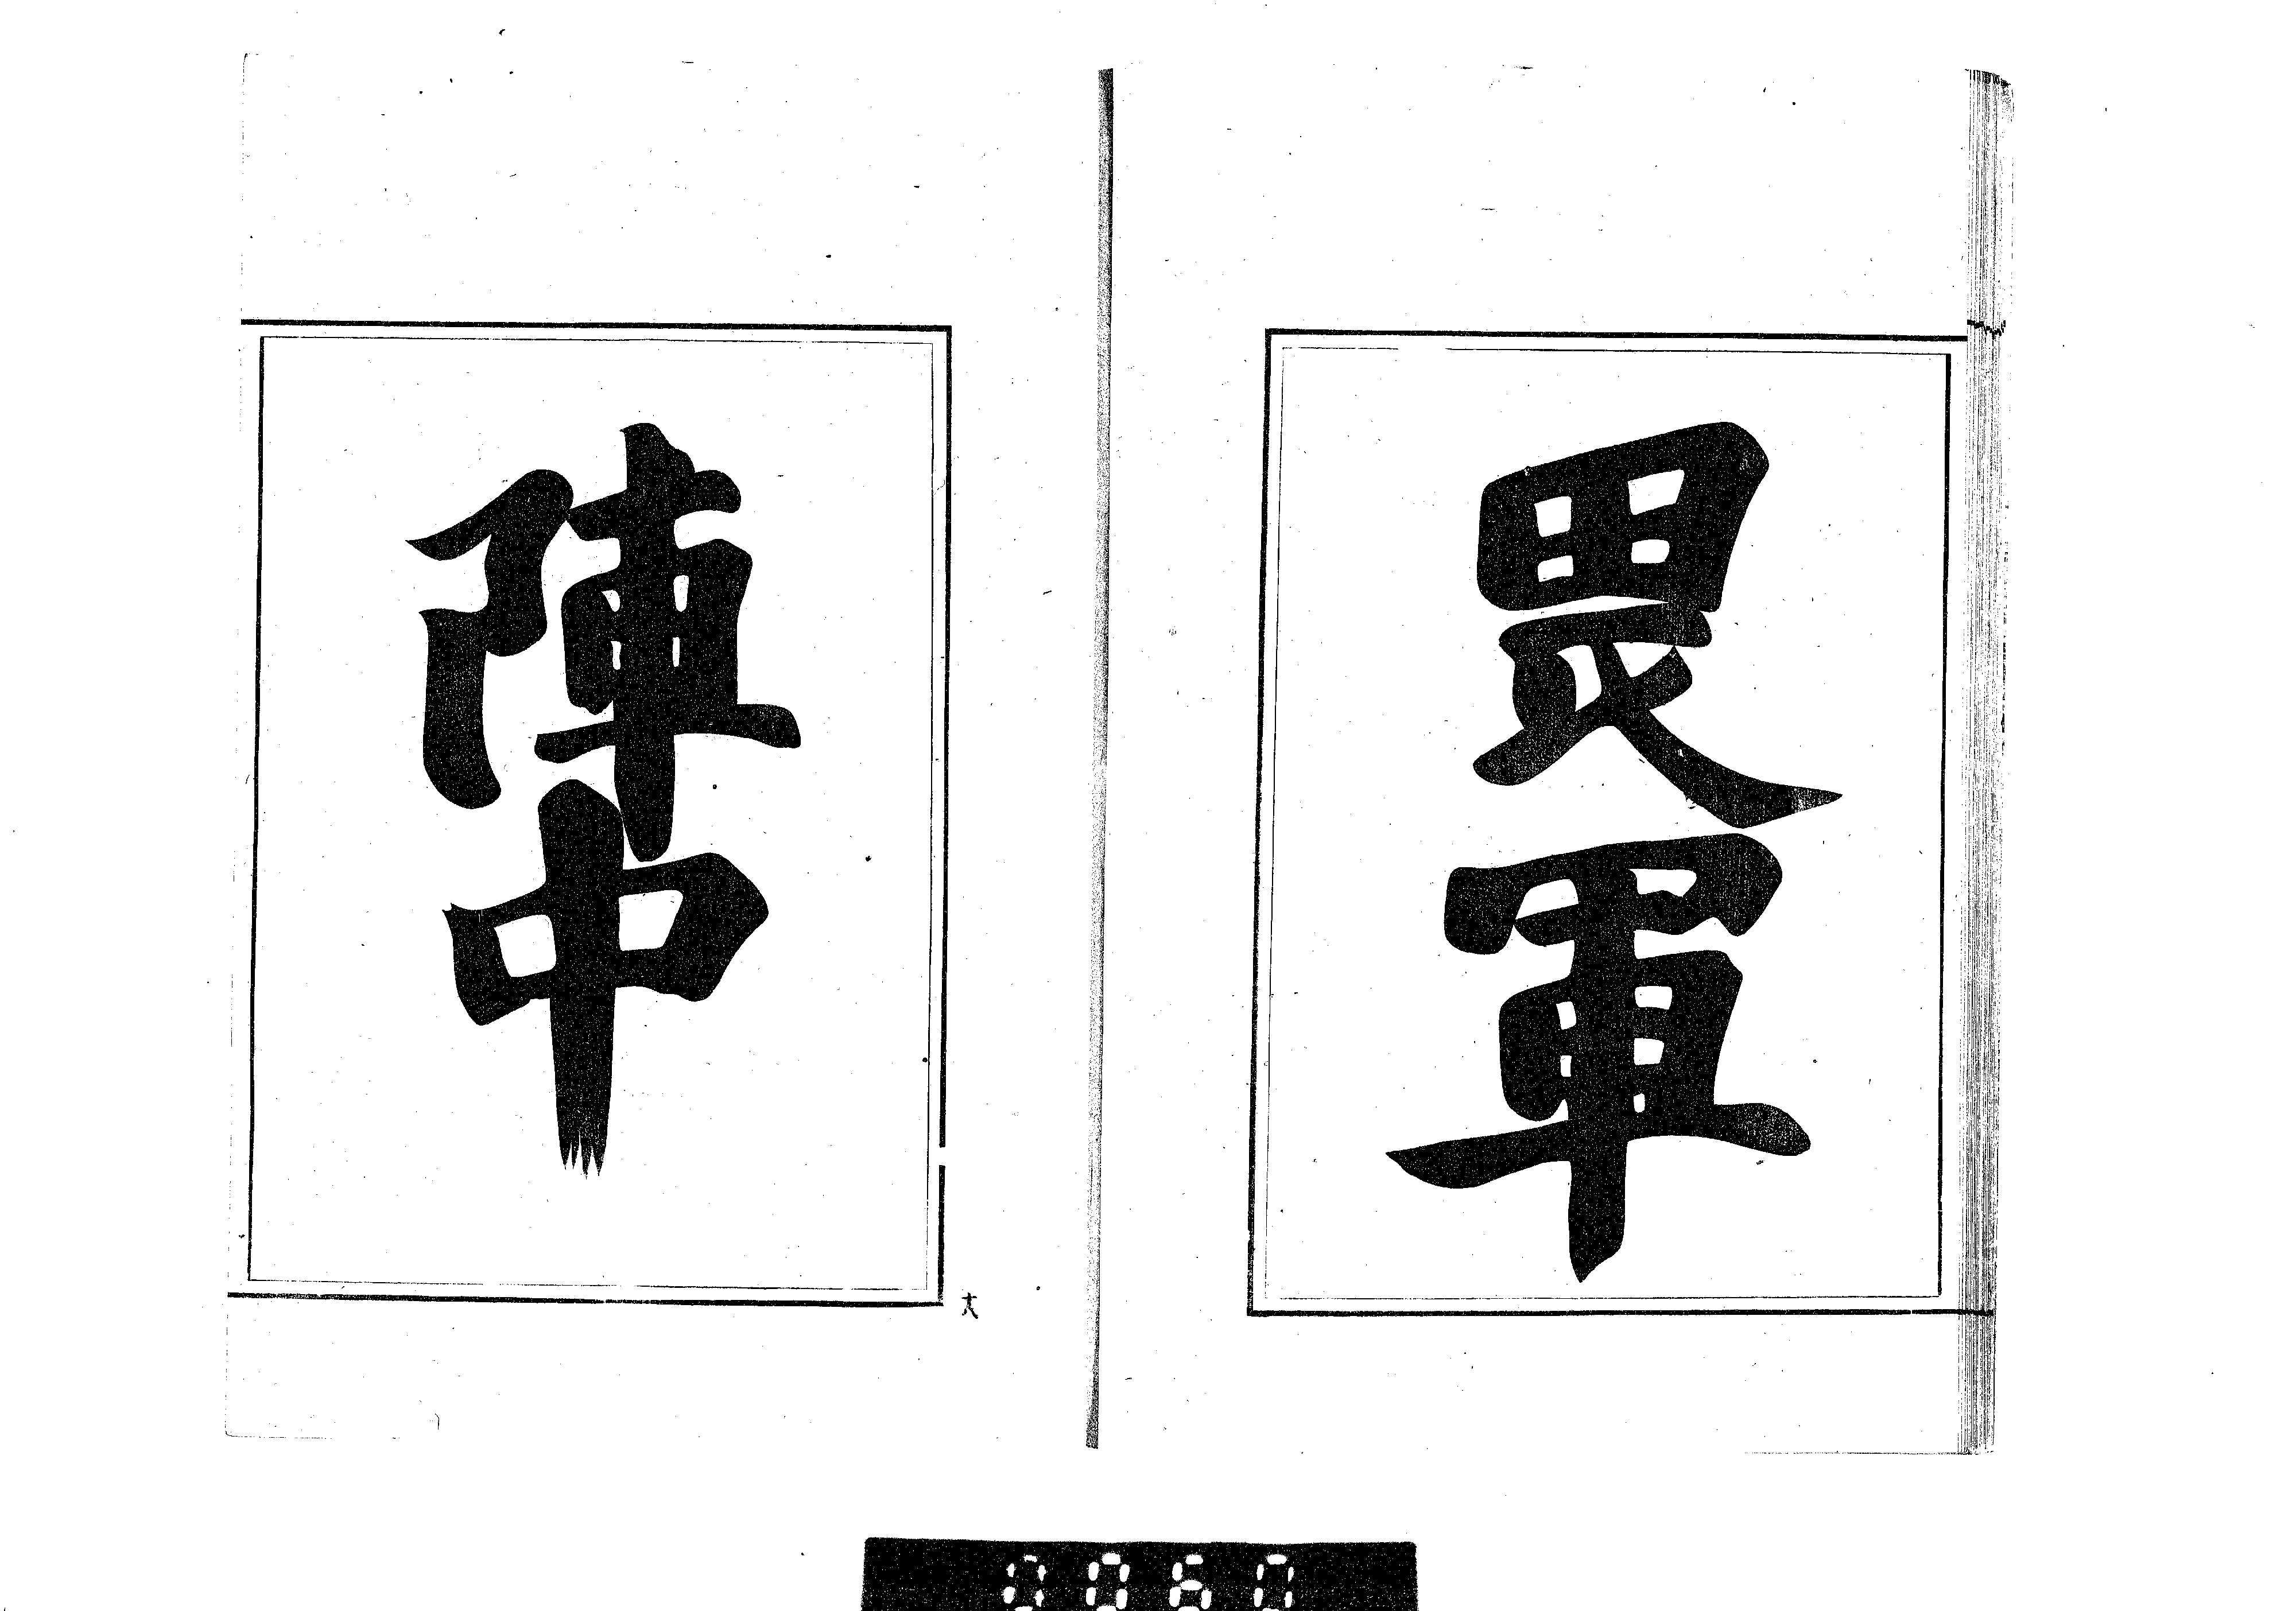 畏軍
陣中
十八
0060